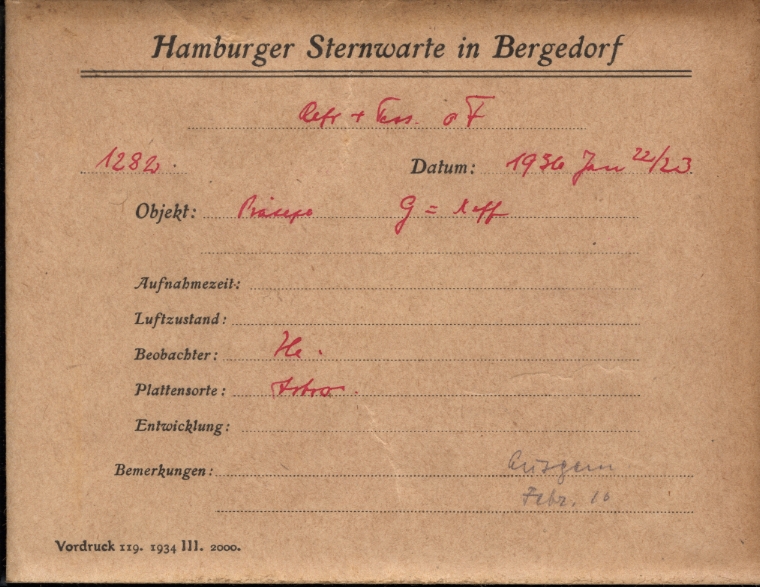 Hamburger Sternwarte in Bergedorf
Refr + Tess. o F
1282 Datum: 1936 Jan 22/23
Objekt: Präsepe G = λeff
Aufnahmezeit:
Luftzustand:
Beobachter: He.
Plattensorte: Astro
Entwicklung:
Bemerkungen:
Febr. 16
Vordruck 119. 1934 III. 2000.